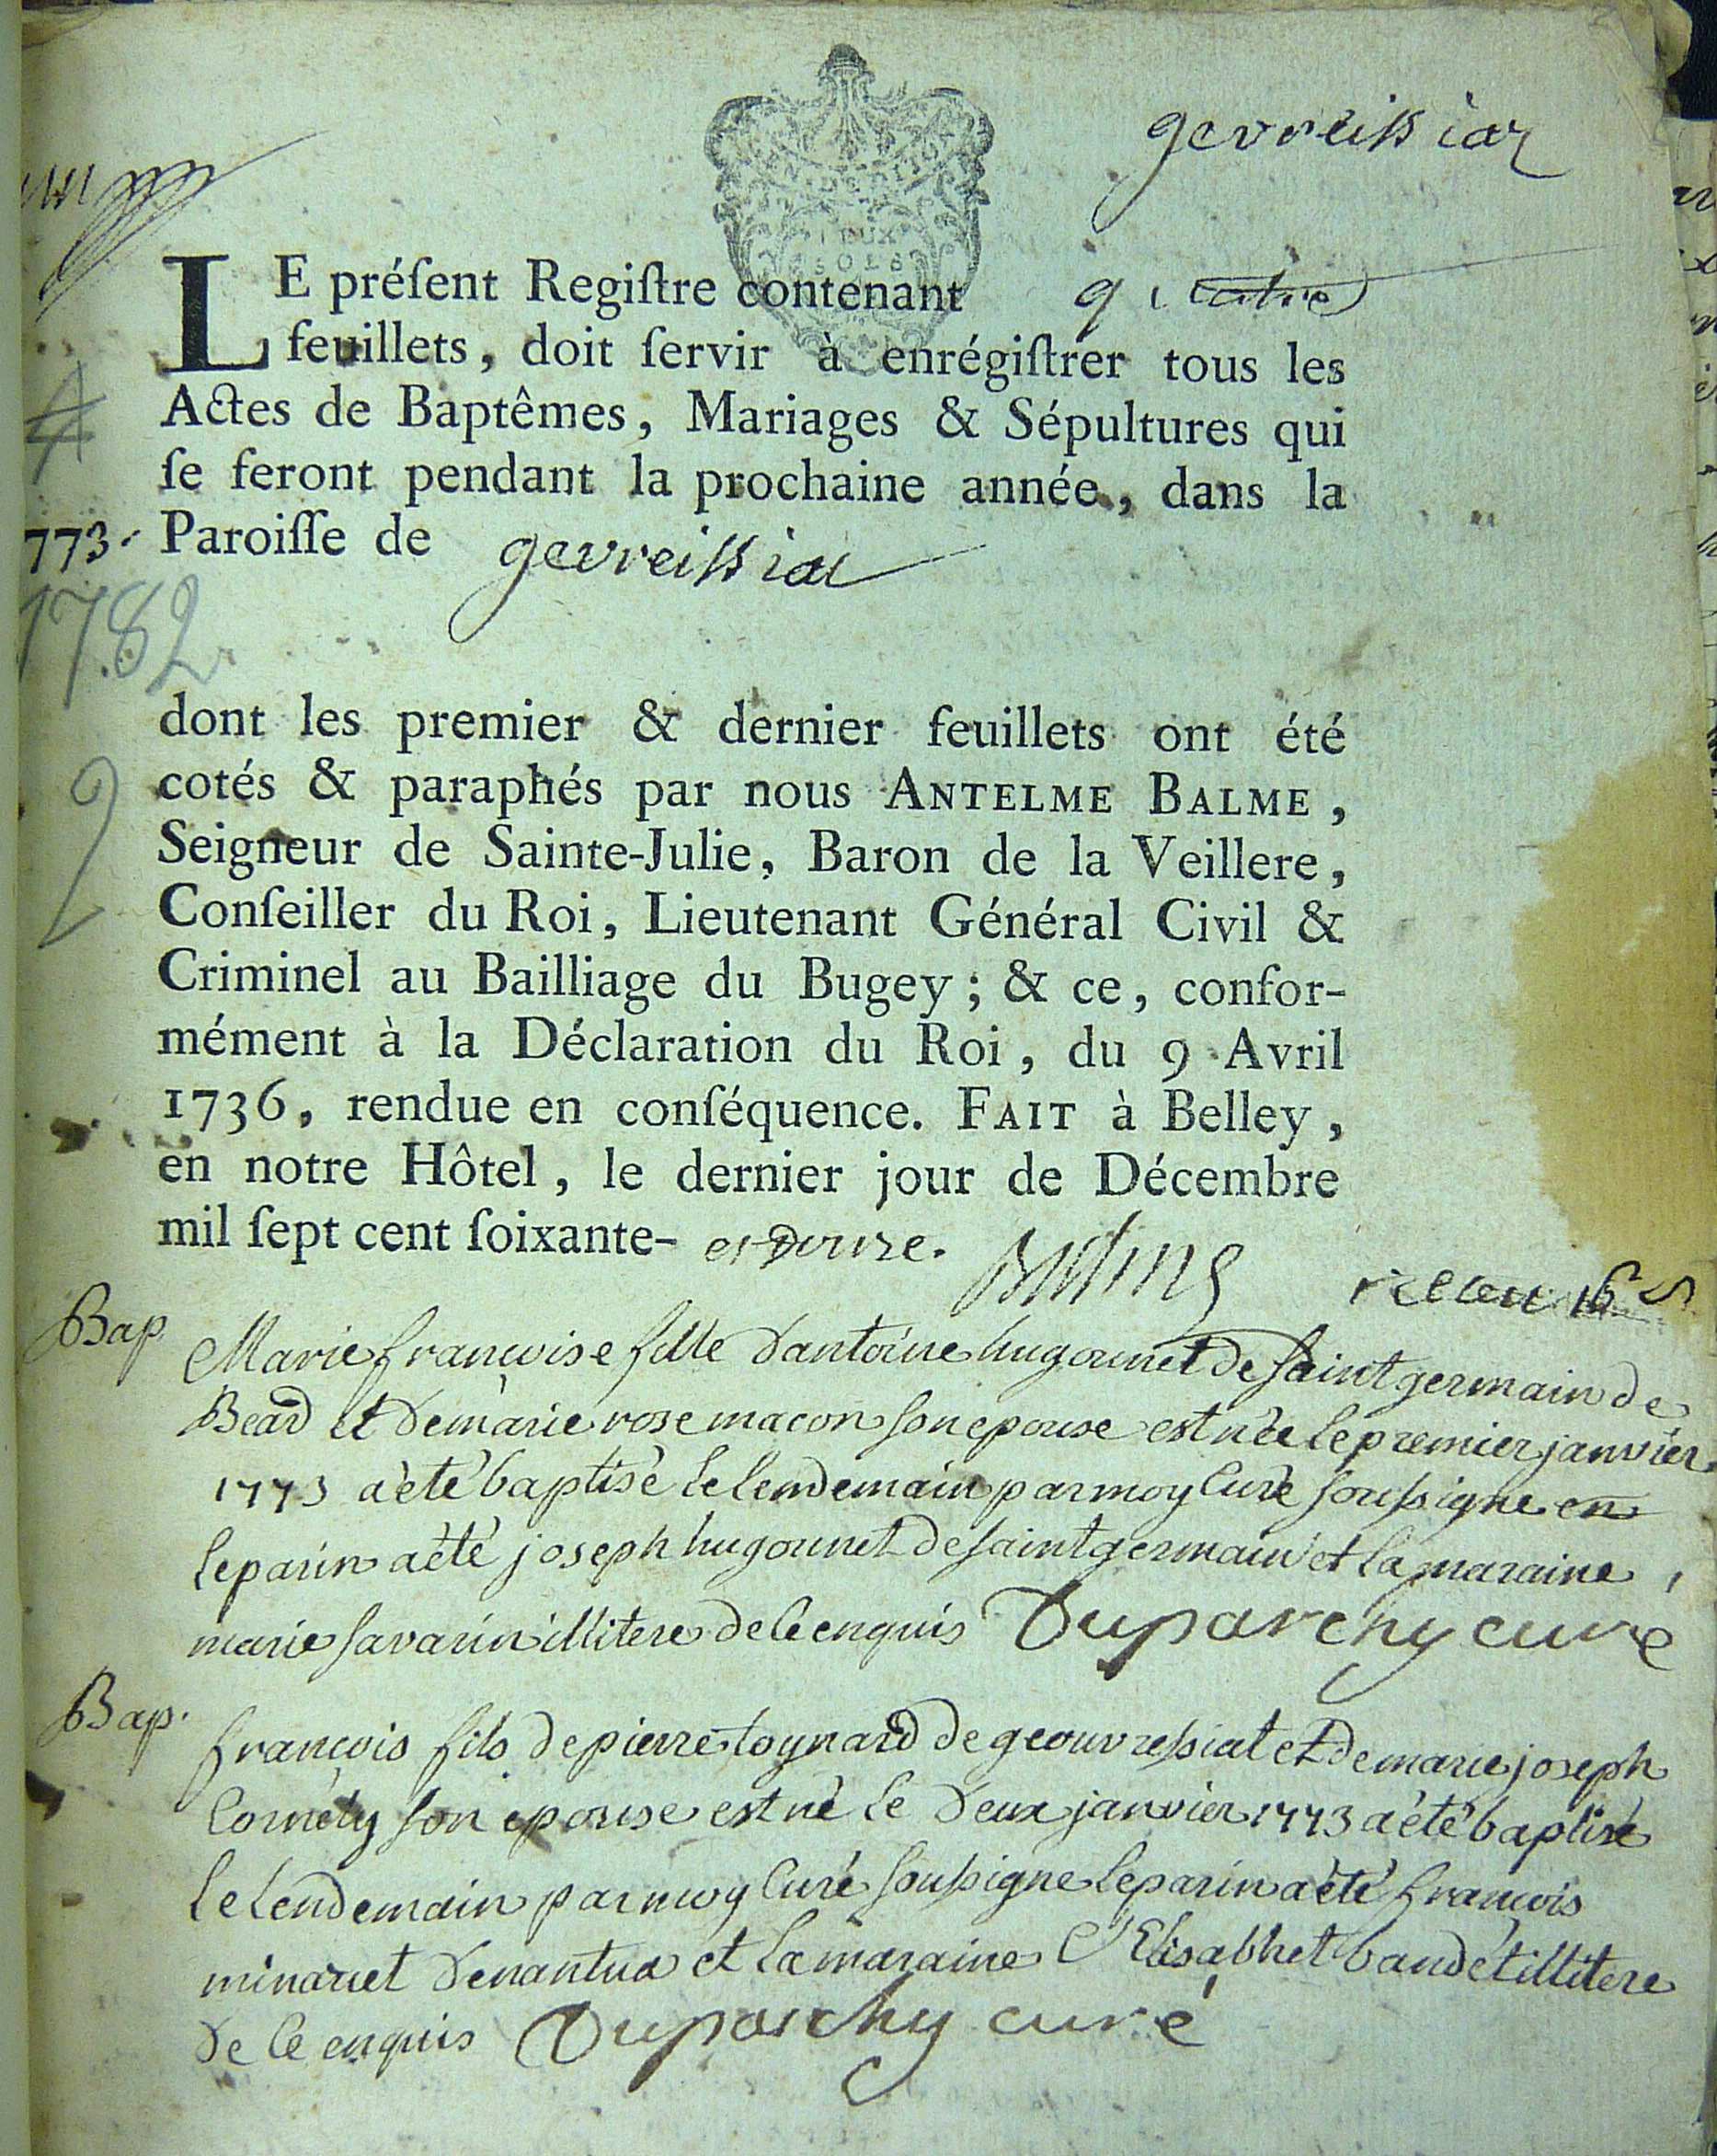 gevreissiaz
LE préſent Regiſtre contenant quatre
feuillets, doit ſervir à enrégiſtrer tous les
Actes de Baptêmes, Mariages & Sépultures qui
ſe feront pendant la prochaine année, dans la
773. Paroiſſe de gevreissiat
1782
dont les premier & dernier feuillets ont été
cotés & paraphés par nous ANTELME BALME,
2
Seigneur de Sainte-Julie, Baron de la Veillere,
Conſeiller du Roi, Lieutenant Général Civil &
Criminel au Bailliage du Bugey; & ce, confor-
mément à la Déclaration du Roi, du 9 Avril
1736, rendue en conſéquence. FAIT à Belley,
en notre Hôtel, le dernier jour de Décembre
mil ſept cent ſoixante- et douze. Balme
Bap
Marie françoise fille d'antoine hugounet de saint germain de
Beard et de marie rose macon son epouse est née le premier janvier
1773 a été baptisé le lendemain par moy curé soussigne en
le parin a été joseph hugounet de saint germain et la maraine
marie savarin illitere de ce enquis Duparchy curé
Bap.
françois fils de pierre toynard de geouvressiat et de marie joseph
Cornély son epouse est né le deux janvier 1773 a été baptisé
le lendemain par moy curé soussigne le parin a été françois
minaret de nantua et la maraine Elisabhet baudét illitere
de ce enquis Duparchy curé